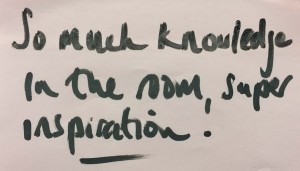 So much knowledge
in the room, super
inspiration!